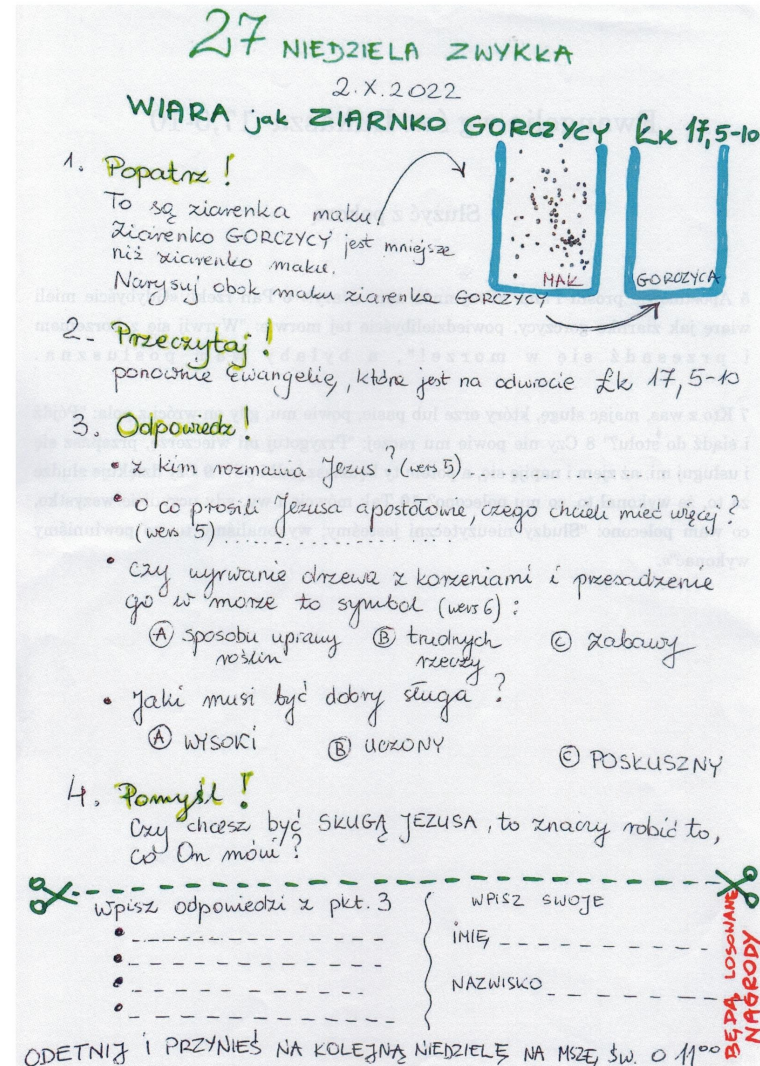 27 NIEDZIELA ZWYKŁA
2.X.2022
WIARA jak ZIARNKO GORCZYCY Łk 17,5-10
1. Popatrz!
To są ziarenka maku
Ziarenko GORCZYCY jest mniejsze
niż ziarenko maku.
Narysuj obok maku ziarenka GORCZYCY
MAK
GORCZYCA
2. Przeczytaj!
ponownie Ewangelię, która jest na odwrocie Łk 17, 5-10
3. Odpowiedz!
• z kim rozmawia Jezus? (wers 5) ....................
• o co prosili Jezusa apostołowie, czego chcieli mieć więcej?
(wers 5) ....................
• czy wyrwanie drzewa z korzeniami i przesadzenie
go w morze to symbol (wers 6):
Ⓐ sposobu uprawy roślin Ⓑ trudnych rzeczy Ⓒ zabawy
• Jaki musi być dobry sługa?
Ⓐ WYSOKI Ⓑ UCZONY Ⓒ POSŁUSZNY
4. Pomyśl!
Czy chcesz być SŁUGĄ JEZUSA, to znaczy robić to,
co On mówi?
Wpisz odpowiedzi z pkt. 3
WPISZ SWOJE
IMIĘ
NAZWISKO
BĘDĄ LOSOWANE
NAGRODY
ODETNIJ i PRZYNIEŚ NA KOLEJNĄ NIEDZIELĘ NA MSZĘ ŚW. O 11⁰⁰